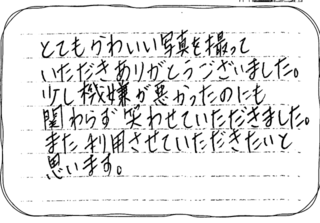 とてもかわいい写真を撮って
いただきありがとうございました。
少し機嫌が悪かったのにも
関わらず笑わせていただきました。
また利用させていただきたいと
思います。